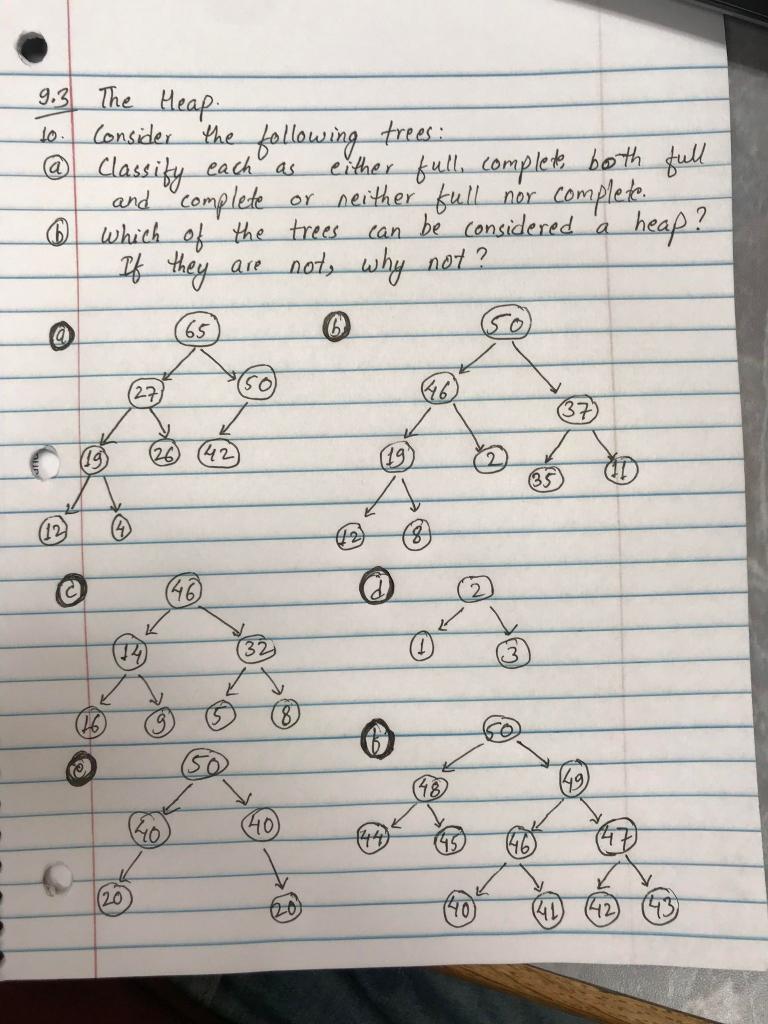 9.3 The Heap.
10. Consider the following trees:
(a) Classify each as either full, complete, both full
and complete or neither full nor complete.
(b) Which of the trees can be considered a heap?
If they are not, why not?
(a) 65 (b) 50
27 50 46 37
19 26 42 19 2 35 11
12 4 12 8
(c) 46 (d) 2
14 32 1 3
16 9 5 8
(e) 50 (f) 50
40 40 48 49
20 20 44 45 46 47
40 41 42 43